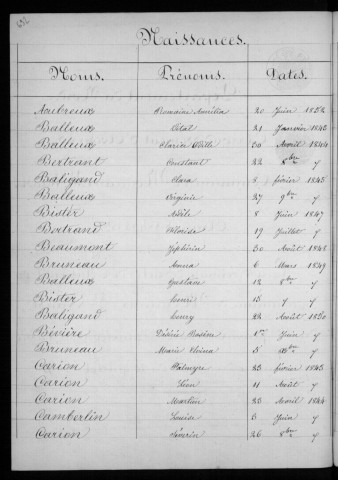 Naissances.
Noms. Prénoms. Dates.
Romaine Amélia 20 Juin 1842
Balleux Vital 21 Janvier 1843
Balleux Clarice 30 Avril 1844
Bertrant Constant 22 8bre y
Baligand Clara 8 février 1845
Balleux Virginie 27 9bre y
Bister Adèle 8 Juin 1847
Bertrand Floride 19 Juillet y
Beaumont Zéphirin 30 Août 1848
Bruneau Anna 6 Mars 1849
Balleux Gustave 12 8bre y
Bister Henri 15 y y
Baligand Henry 22 Août 1850
Bévière Désirée Rosine 1er Juin y
Bruneau Marie Elvina 5 Xbre y
Carion Palmyre 25 février 1843
Carion Léon 11 Août y
Carion Martin 25 Avril 1844
Camberlin Louise 3 Juin y
Carion Séverin 26 8bre y